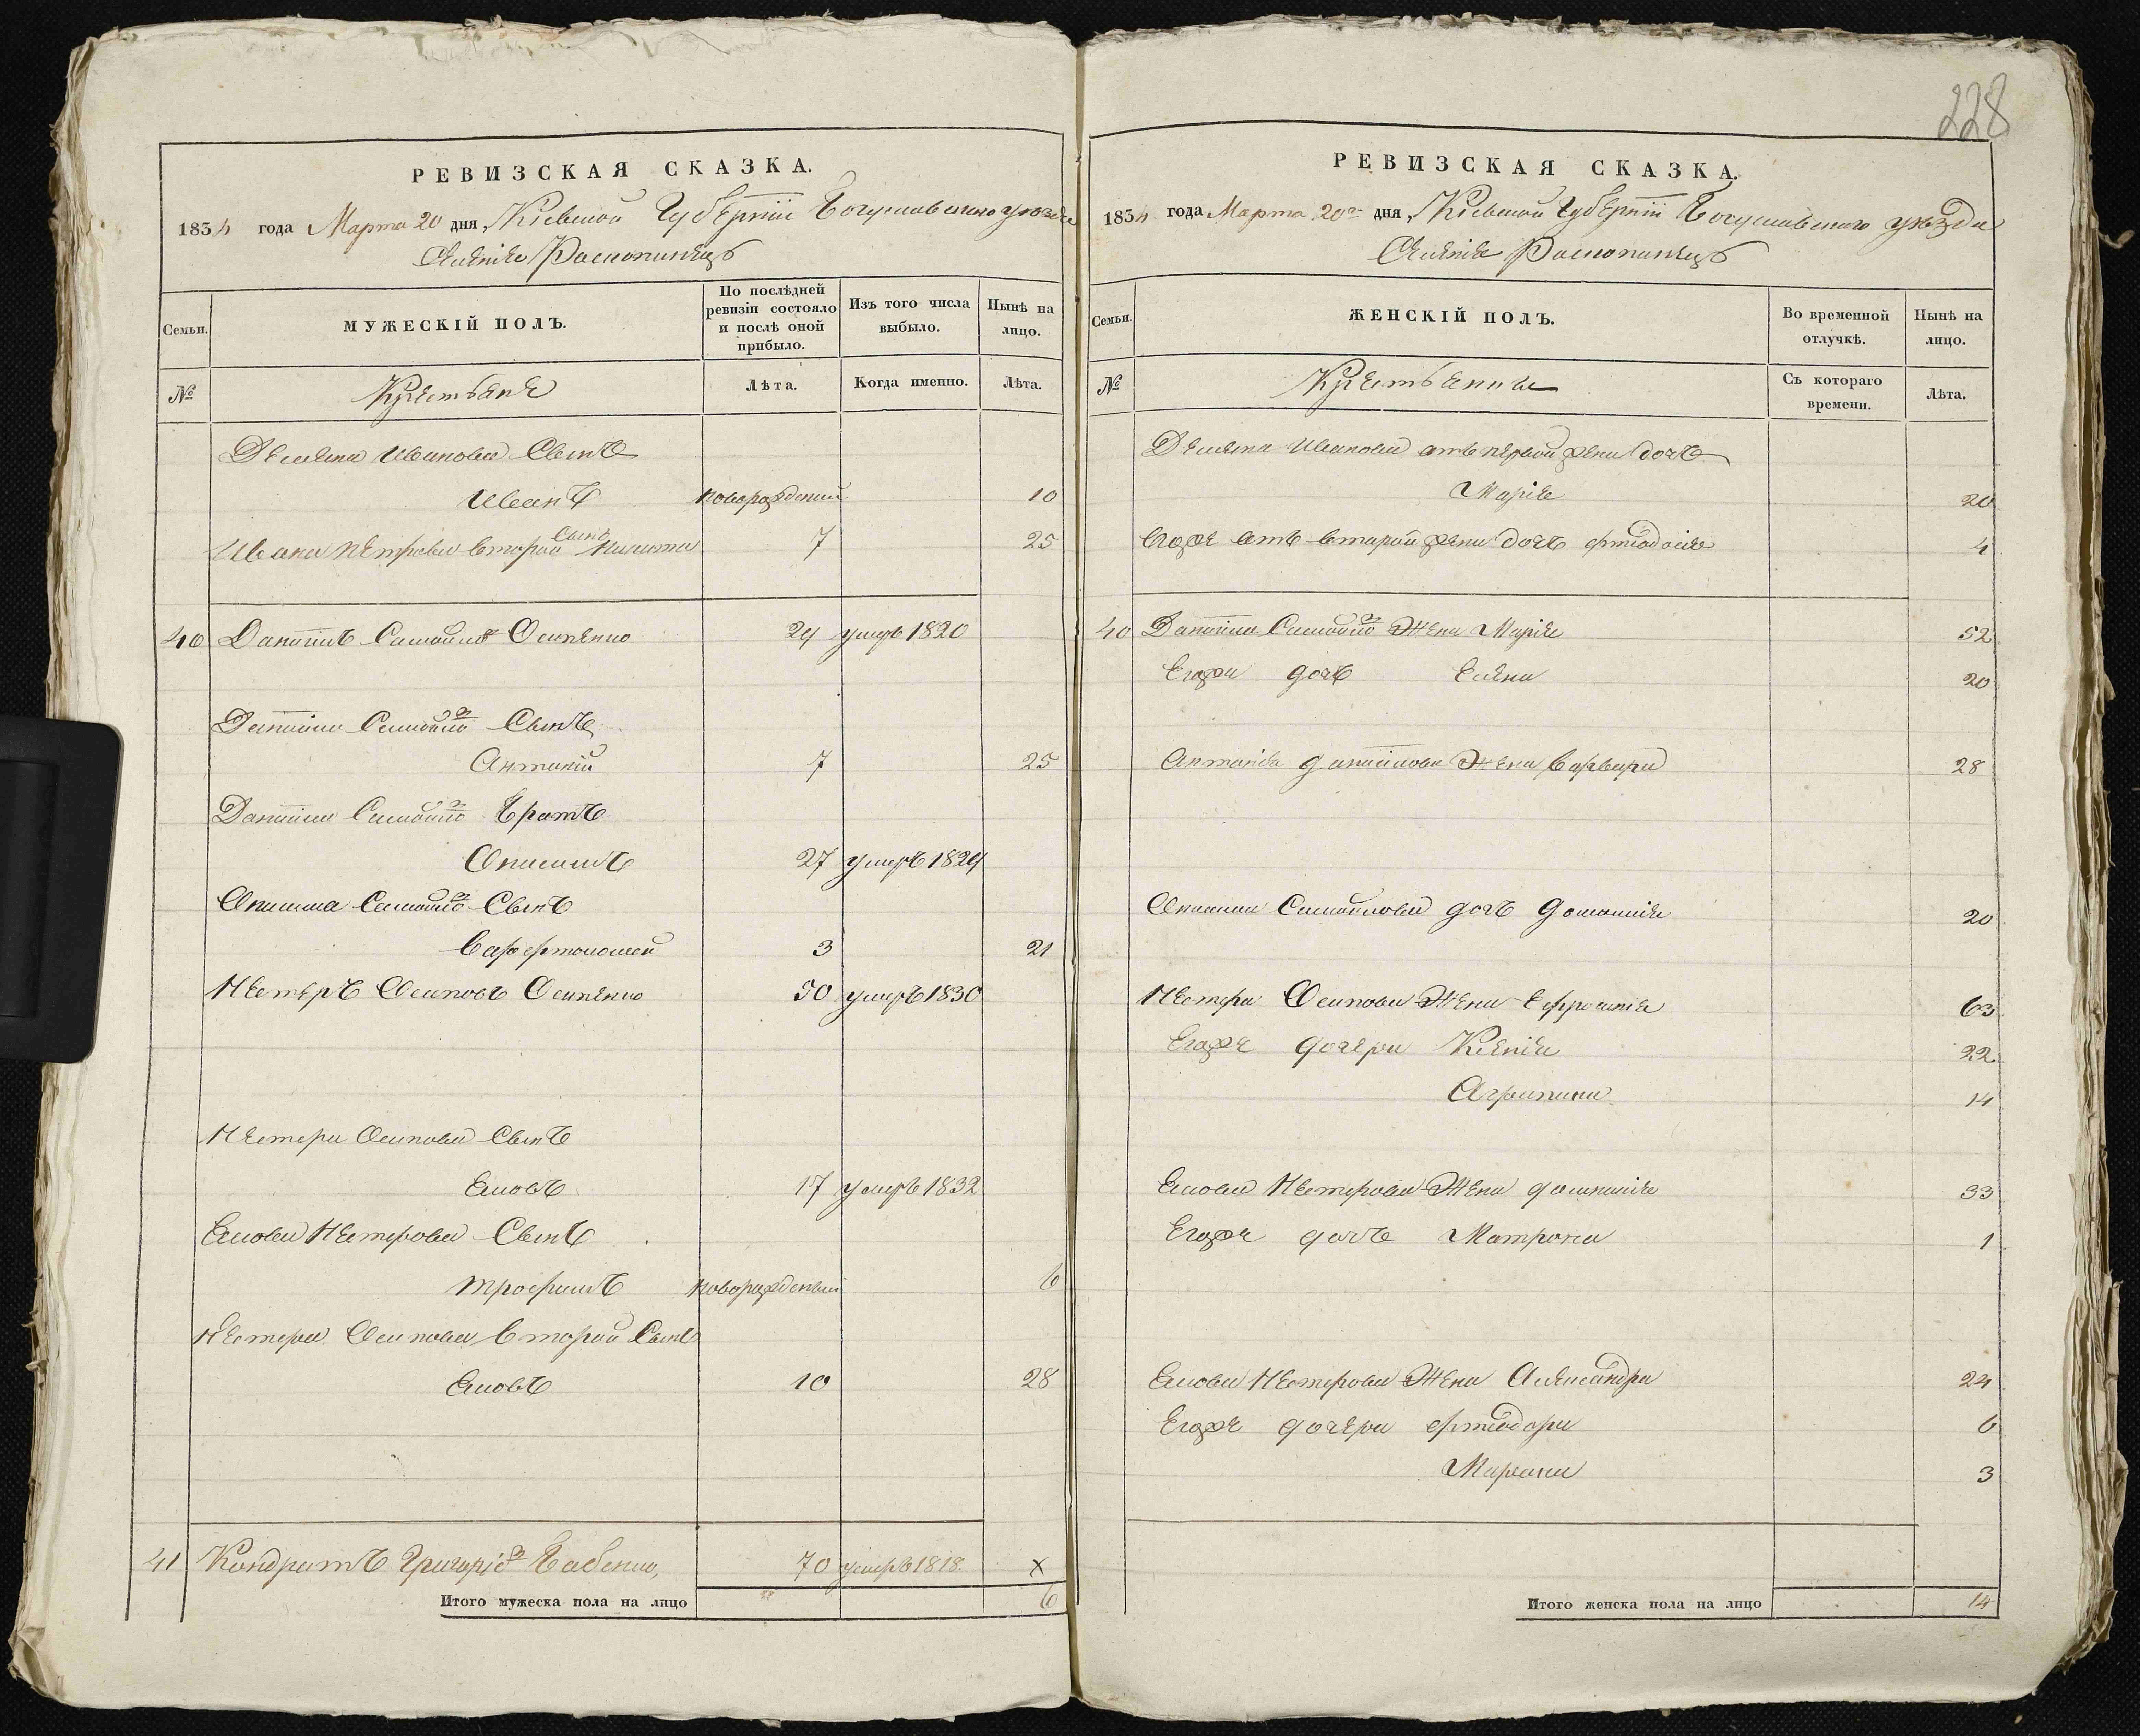 228
РЕВИЗСКАЯ СКАЗКА.
1834 года Марта 20 дня, Кіевской Губерніи Богуславского уезда
Селенія Раскопинецъ
Семьи.
МУЖЕСКІЙ ПОЛЪ.
По послѣдней ревизіи состояло и послѣ оной прибыло.
Изъ того числа выбыло.
Нынѣ на лицо.
№
Крестьяне
Лѣта.
Когда именно.
Лѣта.
Демяна Иванова Сынъ
Иванъ новорожденый 10
Ивана Петрова вторый Сынъ Никита 7 25
40 Даніилъ Самойло Осипенко 24 умеръ 1820
Даніила Самойло Сынъ
Антоній 7 25
Даніила Самойло Братъ
Онисимъ 27 умеръ 1829
Онисима Самойло Сынъ
Варфоломей 3 21
Нестеръ Осиповъ Осипенко 50 умеръ 1830
Нестера Осипова Сынъ
Яковъ 17 умеръ 1832
Якова Нестерова Сынъ
Трофимъ новорожденый 6
Нестера Осипова вторый Сынъ
Яковъ 10 28
41 Кондратъ Григорьев Бабенко, 70 умеръ 1818. х
Итого мужеска пола на лицо 6
РЕВИЗСКАЯ СКАЗКА.
1834 года Марта 20го дня, Кіевской Губерніи Богуславского уезда
Селенія Раскопинецъ
Семьи.
ЖЕНСКІЙ ПОЛЪ.
Во временной отлучкѣ.
Нынѣ на лицо.
№
Крестьянки
Съ котораго времени.
Лѣта.
Демяна Иванова отъ первой жены дочь
Марія 20
Егоже отъ второй жены дочь Феодосія 4
40 Даніила Самойло Жена Марія 52
Егожа дочь Елена 20
Антонія Даніилова Жена Варвара 28
Онисима Самойлова дочь 20
Нестера Осипова Жена Ефросинія 63
Егоже дочери Ксенія 22
Агрипина 14
Якова Нестерова Жена 33
Егоже дочь Матрона 1
Якова Нестерова Жена Александра 24
Егоже дочери Феодора 6
Маріана 3
Итого женска пола на лицо 14